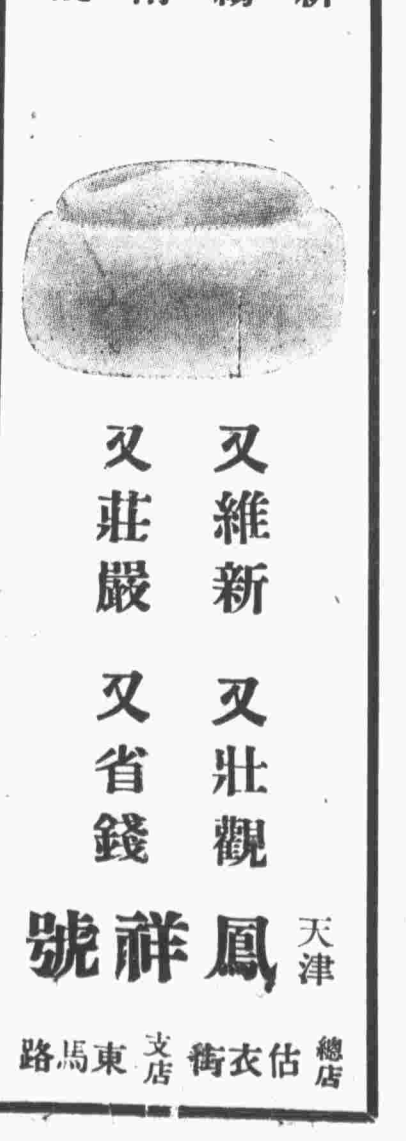 又維新 又壯觀
又莊嚴 又省錢
天津
鳳祥號
總店 估衣街 支店 東馬路